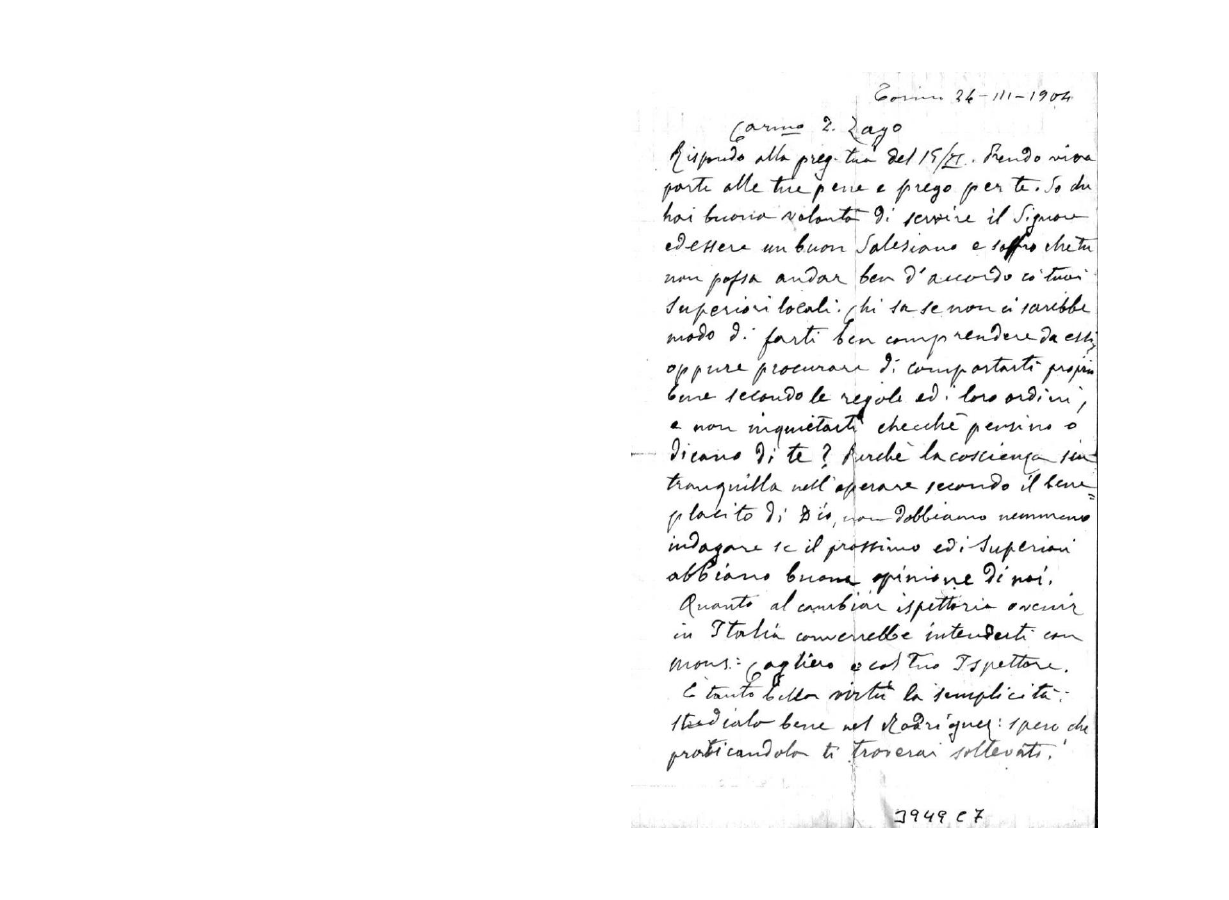 Torino 24-III-1904
Carmo D. Zago
Rispondo alla preg. tua del 15/II. Prendo viva
parte alle tue pene e prego per te. So che
hai buona volontà di servire il Signore
ed essere un buon Salesiano e soffro che tu
non possa andar ben d'accordo coi tuoi
Superiori locali. Chi sa se non ci sarebbe
modo di farti ben comprendere da essi,
oppure procurare di comportarti proprio
bene secondo le regole ed i loro ordini,
e non inquietarti checchè pensino o
dicano di te? Purchè la coscienza sia
tranquilla nell'operare secondo il bene=
placito di Dio, non dobbiamo nemmeno
indagare se il prossimo ed i Superiori
abbiano buona opinione di noi.
Quanto al cambiar ispettoria o venir
in Italia converrebbe intenderti con
mons: Cagliero o col tuo Ispettore.
È tanto bella virtù la semplicità:
studiala bene nel Rodriguez: spero che
praticandola ti troverai sollevato.
3949 C7